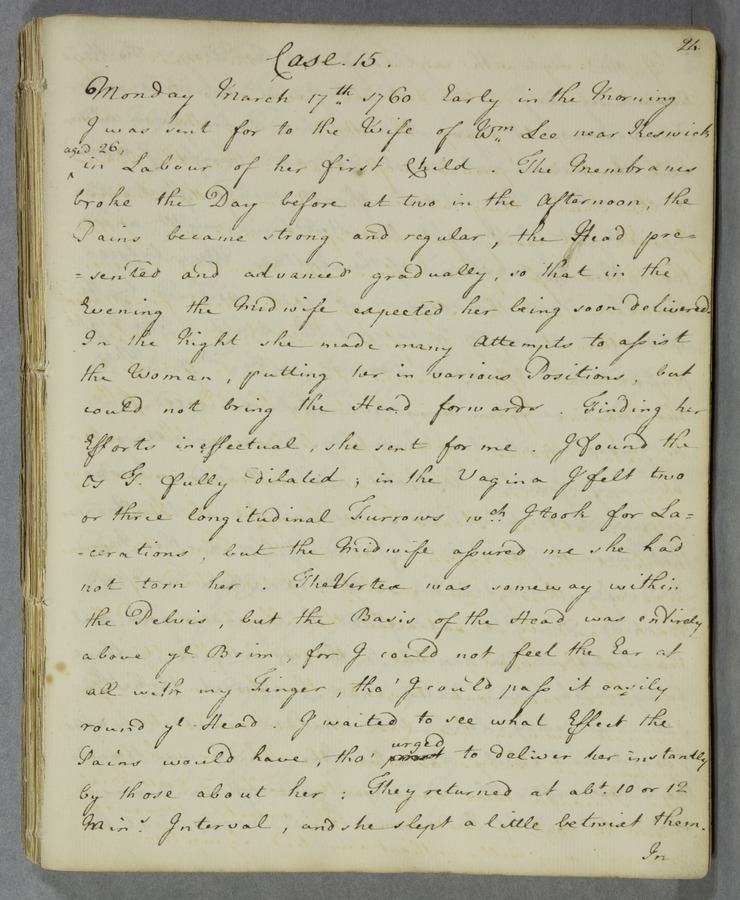 24
Case. 15.
Monday March 17th 1760 Early in the Morning
I was sent for to the Wife of Wm Lee near Keswick
aged 26,
^ in Labour of her first Child. The Membranes
broke the Day before at two in the Afternoon, the
Pains became strong and regular, the Head pre=
=sented and advanced gradually, so that in the
Evening the Midwife expected her being soon delivered.
In the Night she made many Attempts to assist
the Woman, putting her in various Positions, but
could not bring the Head forwards. Finding her
Efforts ineffectual, she sent for me. I found the
Os T. fully dilated; in the Vagina I felt two
or three longitudinal Furrows wch I took for La=
-cerations, but the Midwife assured me she had
not torn her. The Vertex was someway within
the Pelvis, but the Basis of the Head was entirely
above ye Brim, for I could not feel the Ear at
all with my Finger, tho' I could pass it easily
round ye Head. I waited to see what Effect the
Pains would have, tho' urged to deliver her instantly
by those about her: They returned at abt. 10 or 12
Mins Interval, and she slept a little betwixt them.
In